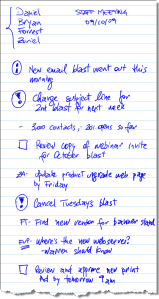 Daniel
Bryan
Forrest
Zuriel
STAFF MEETING
09/10/09
New email blast went out this
morning
Change subject line for
2nd blast for next week
- 2000 contacts, 201 opens so far
Review copy of webinar invite
for October blast
ZA- Update product upgrade web page
by Friday
Cancel Tuesdays blast
FT- Find new vendor for banner stand
FUP- Where's the new webserver?
- Warren should know
Review and approve new print
Ad by tomorrow 9am